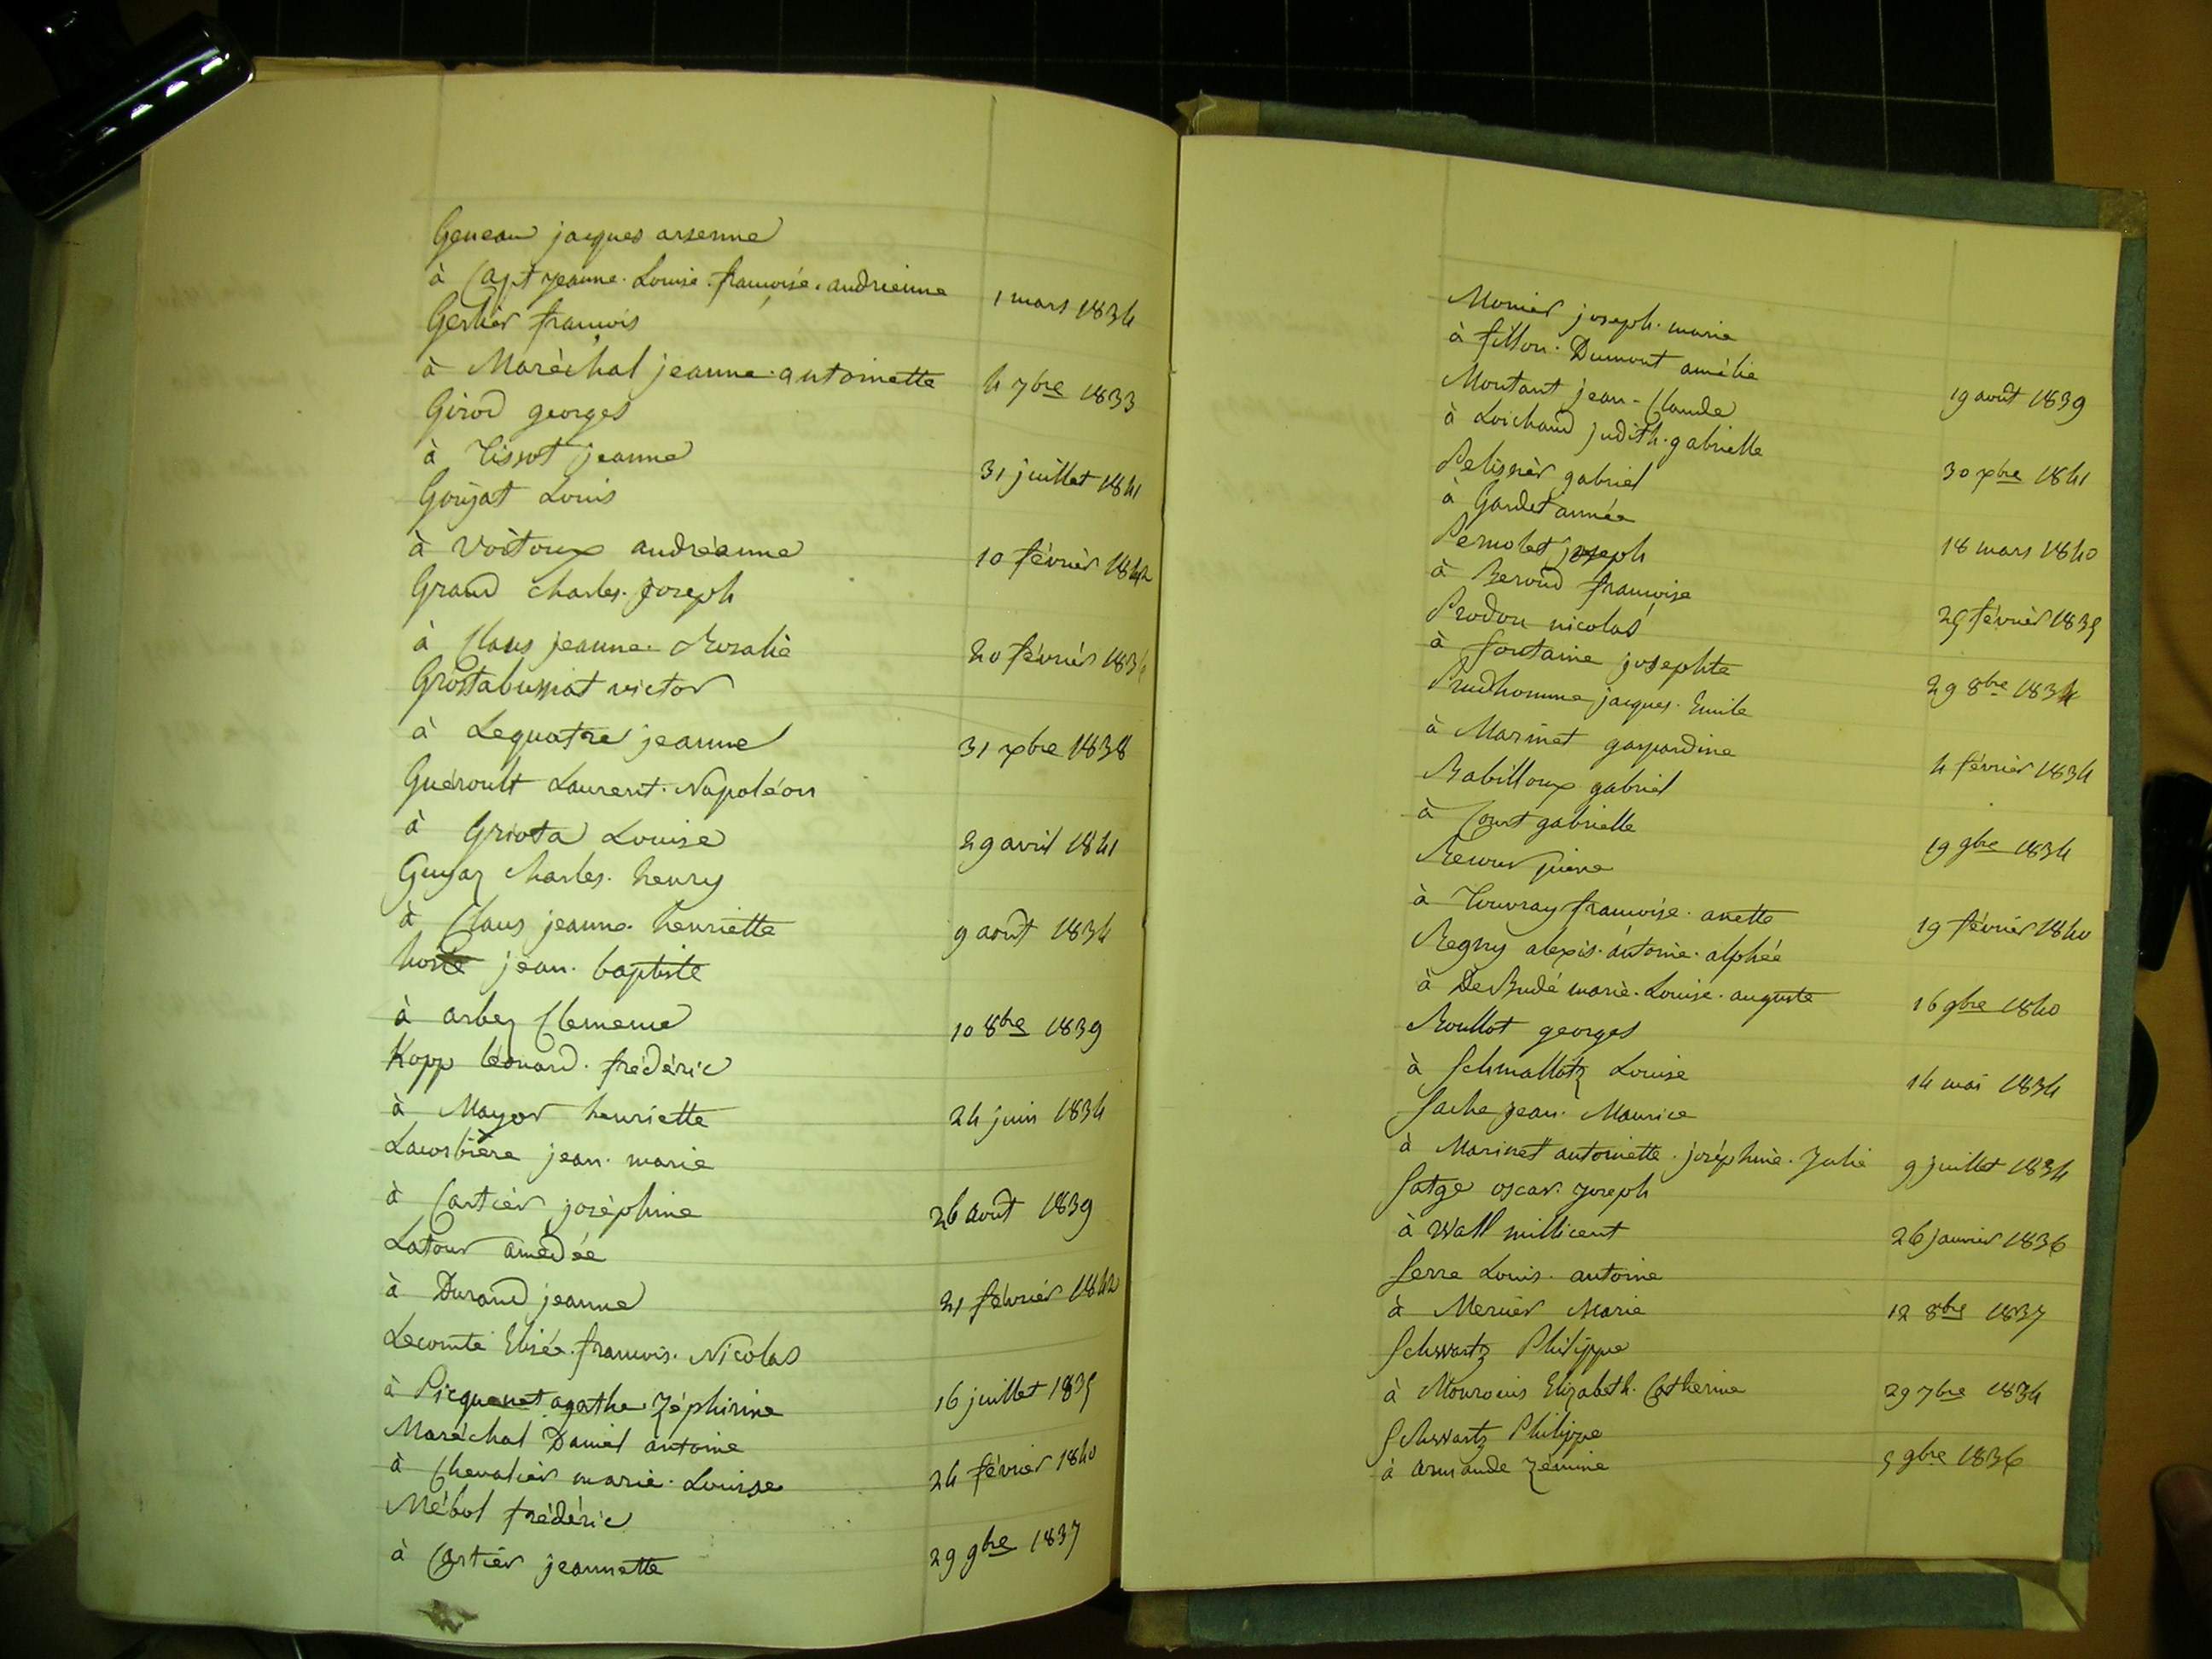 Geneau jacques arsenne
à Capt jeanne. Louise. françoise. andrienne 1 mars 1834
Gerbier françois
à Maréchal jeanne. antoinette 4 7bre 1833
Girod georges
à Tissot jeanne 31 juillet 1841
Goujat Louis
à Voitoux andréanne 10 février 1842
Grand charles. Joseph
à Claus jeanne. Rosalie 20 février 183
Grostabussiat victor
à Lequatre jeanne 31 xbre 1838
Guéroult Laurent. Napoléon
à Griota Louise 29 avril 1841
Guyaz charles. henry
à Claus jeanne. henriette 9 août 1834
hoste jean. baptiste
à arbez Clemence 10 8bre 1839
Kopp léonard. frédéric
à Mayor henriette 24 juin 1834
Lacorbière jean. marie
à Cartier joséphine 26 août 1839
Latour amédée
à Durand jeanne 21 février 1842
Lecomte Elisée. françois. Nicolas
à Picquenet agathe. Zéphirine 16 juillet 1835
Maréchal Daniel antoine
à Chevalier marie. Louise 24 février 1840
Mébol frédéric
à Cartier jeannette 29 9bre 1837
Monier joseph. marie
à fillon. Dumont amélie 19 août 1839
Montant jean-Claude
à Loichaud judith. gabrielle 30 xbre 1841
Pelissier gabriel
à Gardet année 18 mars 1840
Pernolet joseph
à Beroud françoise 25 février 1835
Prodon nicolas
à fontaine josephte 29 8bre 1834
Prudhomme jacques. Emile
à Marinet gaspardine 4 février 1834
Rabilloux gabriel
à Court gabrielle 19 9bre 1834
Recour
à Touvray françoise. anette 19 février 1840
Regny alexis. antoine. alphée
à DeBudé marie. Louise. auguste 16 9bre 1840
Roullot georges
à Schmallotz Louise 14 mai 1834
Sache jean. Maurice
à Marinet antoinette. joséphine. Julie 9 juillet 1834
Satge oscar. joseph
à Wall millicent 26 janvier 1836
Serre Louis. antoine
à Mercier Marie 12 8bre 1837
Schwartz Philippe
à Mourouis Elizabeth. Catherine 29 7bre 1834
Schwartz Philippe
à armande Zémine 5 9bre 1836